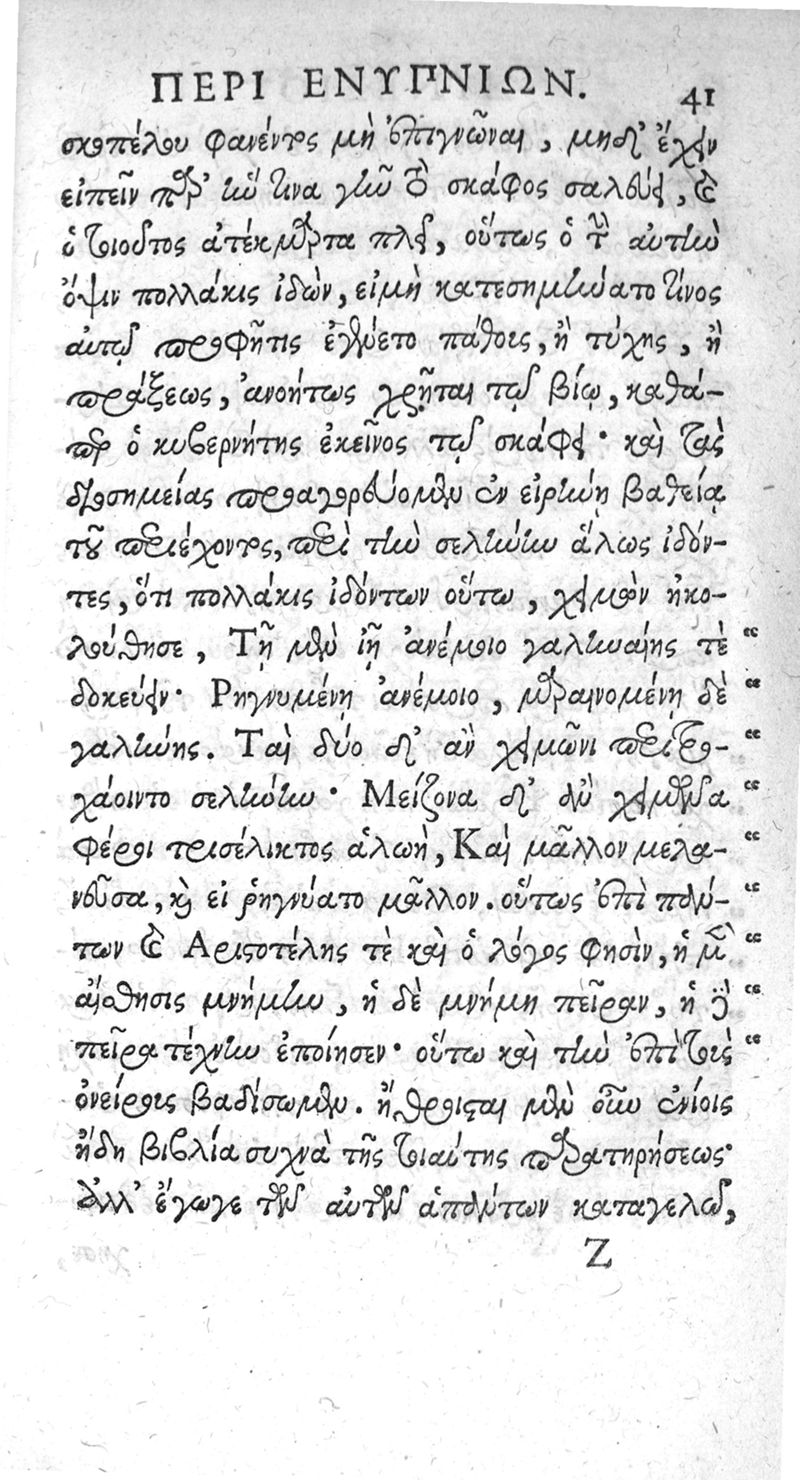 ΠΕΡΙ ΕΝΥΠΝΙΩΝ. 41
σκοπέλου φανέντος μὴ ἐπιγνῶναι, μηδ' ἔχειν
εἰπεῖν παρ' ἥν τινα γῆν τὸ σκάφος σαλεύει, καὶ
ὁ τοιοῦτος ἀτέκμαρτα πλεῖ, οὕτως ὁ τὴν αὐτὴν
ὄψιν πολλάκις ἰδὼν, εἰ μὴ κατεσημήνατο τίνος
αὐτῷ προφῆτις ἐγένετο πάθοις, ἢ τύχης, ἢ
πράξεως, ἀνοήτως χρῆται τῷ βίῳ, καθά-
περ ὁ κυβερνήτης ἐκεῖνος τῷ σκάφει· καὶ τὰς
διοσημείας προαγορεύομεν ἐν εἰρήνῃ βαθείᾳ
τοῦ περιέχοντος, περὶ τὴν σελήνην ἅλως ἰδόν-
τες, ὅτι πολλάκις ἰδόντων οὕτω, χειμὼν ἠκο-
λούθησε, Τῇ μὲν ἰῇ ἀνέμοιο γαληναίης τὲ “
δοκεύειν· Ρηγνυμένῃ ἀνέμοιο, μαραινομένῃ δὲ “
γαλήνης. Ταὶ δύο δ' ἂν χειμῶνι περιτρο- “
χάοιντο σελήνην· Μείζονα δ' ἂν χειμῶνα “
φέροι τρισέλικτος ἁλωὴ, Καὶ μᾶλλον μελα- “
νεῦσα, καὶ εἰ ῥηγνύατο μᾶλλον. οὕτως ἐπὶ πάν- “
των καὶ Αριστοτέλης τὲ καὶ ὁ λόγος φησὶν, ἡ μὲν “
αἴσθησις μνήμην, ἡ δὲ μνήμη πεῖραν, ἡ δὲ “
πεῖρα τέχνην ἐποίησεν· οὕτω καὶ τὴν ἐπὶ τοῖς “
ὀνείροις βαδίσωμεν. ἤθροισται μὲν οὖν ἐνίοις
ἤδη βιβλία συχνὰ τῆς τοιαύτης παρατηρήσεως·
ἀλλ' ἔγωγε τῶν αὐτῶν ἁπάντων καταγελῶ,
Ζ